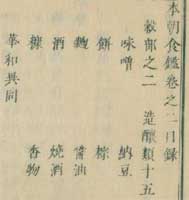 本朝食鑑卷之二目録
穀部之二 造釀類十五
味噌 納豆
餅 粽
麴 醬油
酒 燒酒
糠 香物
華和共同